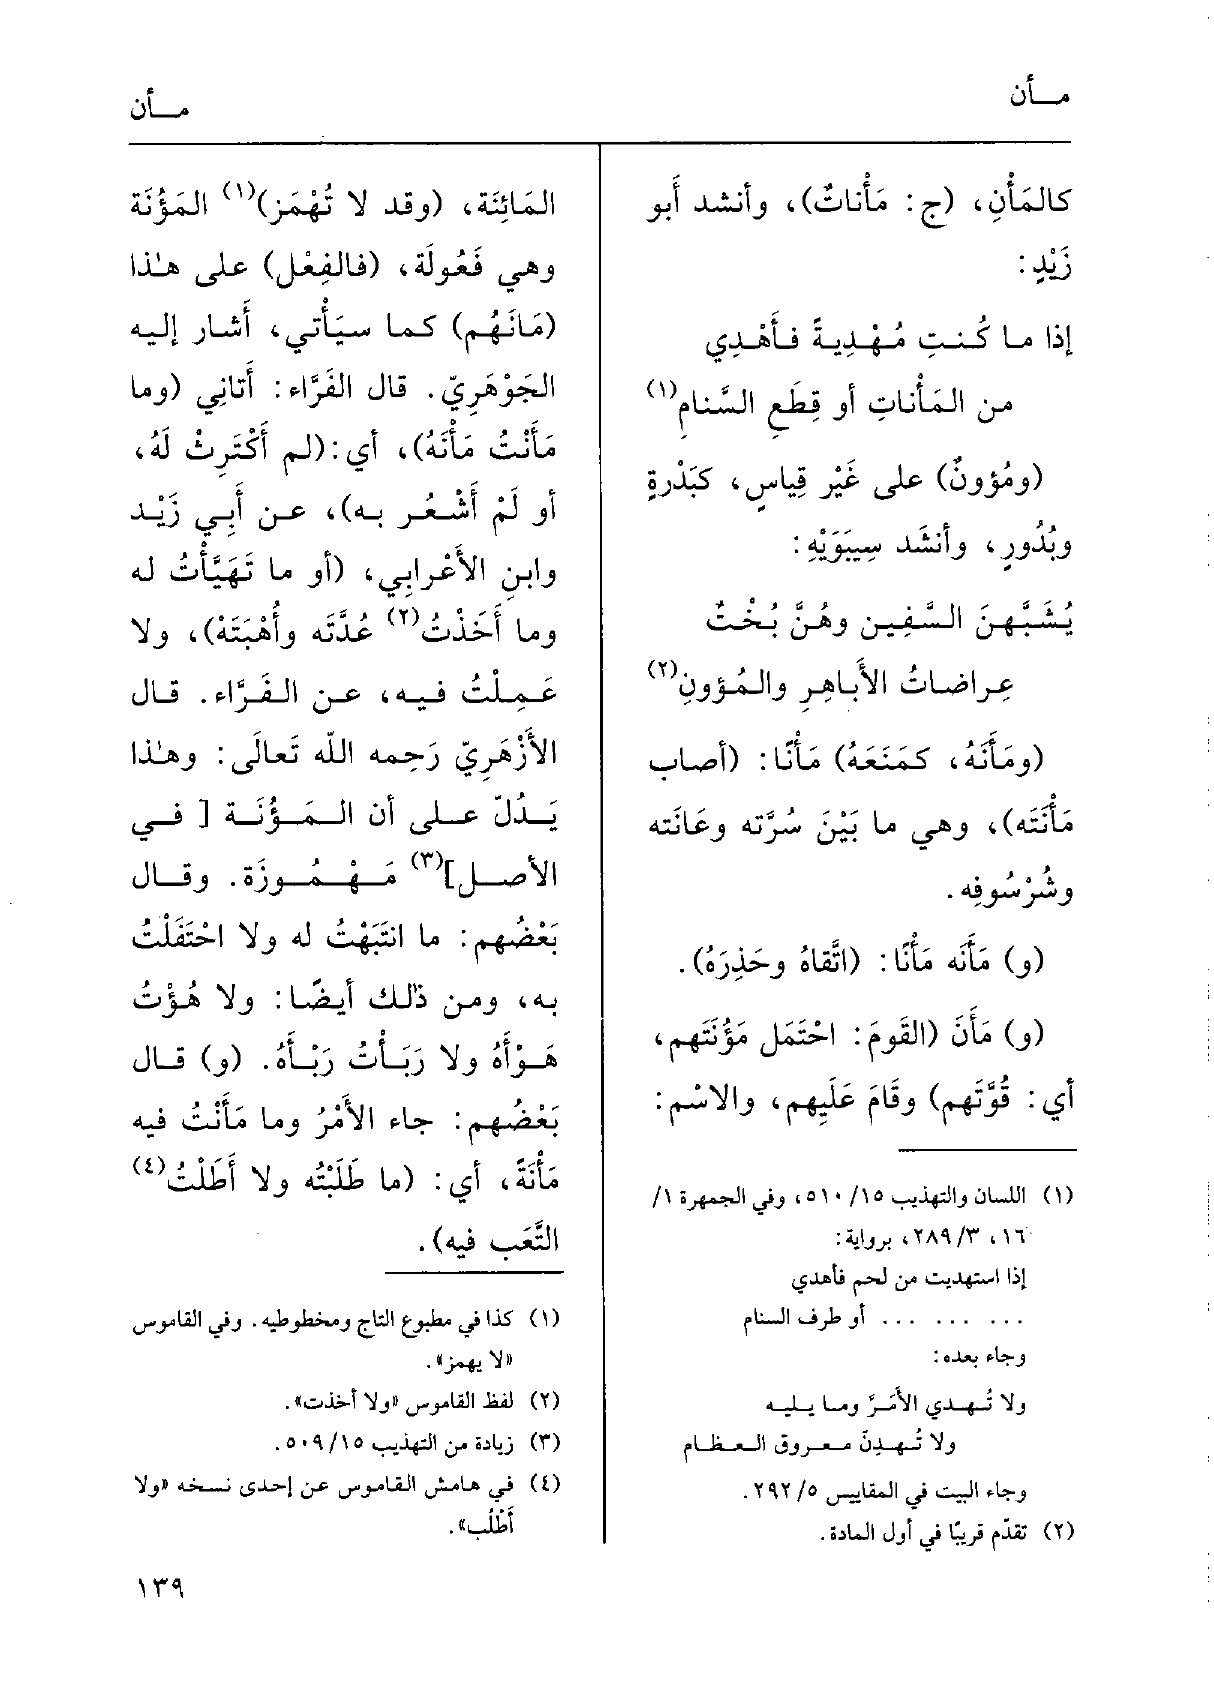 مـأن
مـأن
كالمَأْنِ، (ج: مَأْناتٌ)، وأنشد أبو
زَيْدٍ:
إذا ما كُنتِ مُهْدِيةً فأَهْدِي
من المَأْناتِ أو قِطَعِ السَّنامِ(١)
(ومُؤونٌ) على غَيْرِ قِياسٍ، كبَدْرةٍ
وبُدُورٍ، وأنشَد سِيبَوَيْهِ:
يُشَبَّهنَ السَّفِين وهُنَّ بُخْتٌ
عِراضاتُ الأباهِرِ والمُؤونِ(٢)
(ومَأَنَهُ، كمَنَعَهُ) مَأْنًا: (أصاب
مَأْنَتَه)، وهي ما بَيْنَ سُرَّته وعَانَته
وشُرْسُوفِه.
(و) مَأَنَه مَأْنًا: (اتَّقاهُ وحَذِرَهُ).
(و) مَأَنَ (القَومَ: احْتَمَل مَؤُنَتَهم،
أي: قُوَّتَهم) وقَامَ عَلَيهم، والاسْم:
(١) اللسان والتهذيب ٥١٠/١٥، وفي الجمهرة ١/
١٦، ٢٨٩/٣، برواية:
إذا استهديت من لحم فأهدي
... ... ... أو طرف السنام
وجاء بعده:
ولا تُهدي الأمَرَّ وما يليه
ولا تُهدِنَّ معروق العظام
وجاء البيت في المقاييس ٢٩٢/٥.
(٢) تقدّم قريبًا في أول المادة.
المَائِنَة، (وقد لا تُهْمَز)(١) المَؤُنَة
وهي فَعُولَة، (فالفِعْل) على هٰذا
(مَانَهُم) كما سيَأتي، أَشار إليه
الجَوْهَرِيّ. قال الفَرَّاء: أَتانِي (وما
مَأَنْتُ مَأْنَهُ)، أي:(لم أَكْتَرِثْ لَهُ،
أو لَمْ أَشْعُر به)، عن أَبِي زَيْد
وابنِ الأَعْرابِي، (أو ما تَهَيَّأْتُ له
وما أَخَذْتُ(٢) عُدَّتَه وأُهْبَتَهْ)، ولا
عَمِلْتُ فيه، عن الفَرَّاء. قال
الأَزْهَرِيّ رَحِمه اللّه تَعالَى: وهٰذا
يَدُلّ على أن المَؤُنَة [ في
الأصل](٣) مَهْمُوزَة. وقال
بَعْضُهم: ما انتَبَهْتُ له ولا احْتَفَلْتُ
به، ومن ذٰلك أيضًا: ولا هُؤْتُ
هَوْأَهُ ولا رَبَأْتُ رَبْأَهُ. (و) قال
بَعْضُهم: جاء الأَمْرُ وما مَأَنْتُ فيه
مَأْنَةً، أي: (ما طَلَبْتُه ولا أَطَلْتُ(٤)
التَّعَب فيه).
(١) كذا في مطبوع التاج ومخطوطيه. وفي القاموس
«لا يهمز».
(٢) لفظ القاموس «ولا أخذت».
(٣) زيادة من التهذيب ٥٠٩/١٥.
(٤) في هامش القاموس عن إحدى نسخه «ولا
أَطْلُب».
١٣٩